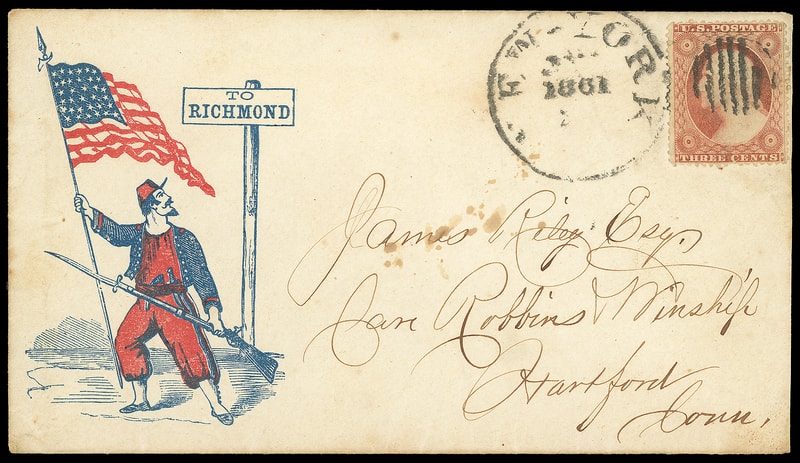 TO
RICHMOND
NEW-YORK
1861
U.S. POSTAGE
THREE CENTS
James Riley Esq.
Care Robbins & Winship
Hartford
Conn.